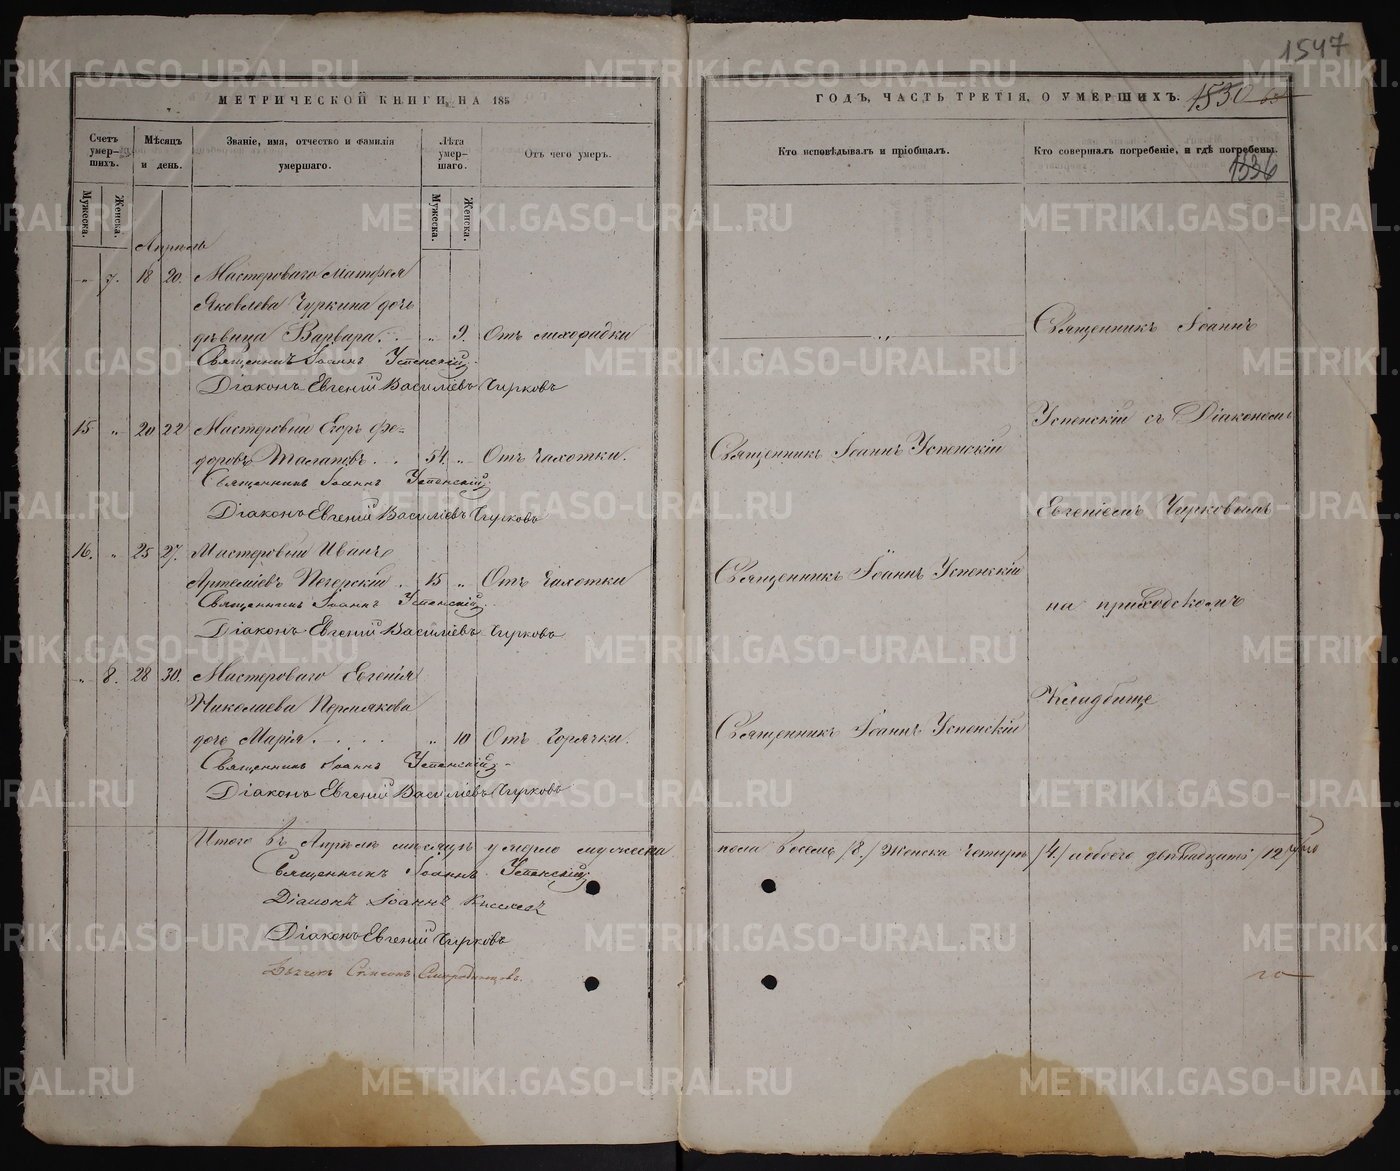 1547
МЕТРИЧЕСКОЙ КНИГИ, НА 185
ГОДЪ, ЧАСТЬ ТРЕТІЯ, О УМЕРШИХЪ.
1530
1536
Счетъ умер-шихъ.
Мѣсяцъ и день.
Званіе, имя, отчество и фамилія умершаго.
Лѣта умер-шаго.
Отъ чего умеръ.
Кто исповѣдывалъ и пріобщалъ.
Кто совершалъ погребеніе, и гдѣ погребены.
Мужеска.
Женска.
Мужеска.
Женска.
Апрѣль
„ 7. 18 20. Мастероваго Матфея
Яковлева Чуркина дочь
дѣвица Варвара. „ 9. Отъ лихорадки
Священникъ Іоаннъ Успенскій
Діаконъ Евгеній Василіевъ Чирковъ
15 „ 20 22 Мастеровый Егоръ Фе-
доровъ Талаповъ . . 54. „ Отъ Чахотки. Священникъ Іоаннъ Успенскій
Священникъ Іоаннъ Успенскій
Діаконъ Евгеній Василіевъ Чирковъ
16. „ 25 27. Мастеровый Иванъ
Артеміевъ Печерскій . 15 „ Отъ Чахотки Священникъ Іоаннъ Успенскій
Священникъ Іоаннъ Успенскій
Діаконъ Евгеній Василіевъ Чирковъ
„ 8. 28 30. Мастероваго Евгенія
Николаева Пермякова
дочь Марія . . . . „ 10 Отъ Горячки. Священникъ Іоаннъ Успенскій
Священникъ Іоаннъ Успенскій
Діаконъ Евгеній Василіевъ Чирковъ
Священникъ Іоаннъ
Успенскій съ Діакономъ
Евгеніемъ Чирковымъ
на приходскомъ
Кладбище
Итого въ Апрѣлѣ мѣсяцѣ умерло мужеска пола восемь /8./ Женска четыре /4./ а обоего двѣнадцать /12/
Священникъ Іоаннъ Успенскій
Діаконъ Іоаннъ
Діаконъ Евгеній Чирковъ
METRIKI.GASO-URAL.RU